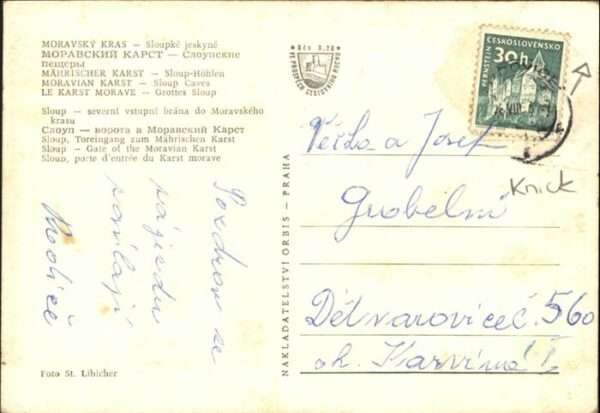 MORAVSKÝ KRAS — Sloupké jeskyně
МОРАВСКИЙ КАРСТ — Слоупские
пещеры
MÄHRISCHER KARST — Sloup-Höhlen
MORAVIAN KARST — Sloup Caves
LE KARST MORAVE — Grottes Sloup
Sloup — severní vstupní brána do Moravského
krasu
Слоуп — ворота в Моравский Карст
Sloup, Toreingang zum Mährischen Karst
Sloup — Gate of the Moravian Karst
Sloup, porte d'entrée du Karst morave
Pozdrav ze
zájezdu
zasílají
Foto St. Libicher
NAKLADATELSTVÍ ORBIS — PRAHA
Kčs 0,20
ČESKOSLOVENSKO
30h
PERNŠTEJN
Knick
a Josef
Grobelní
Dětmarovice č. 560
ok. Karviná I.